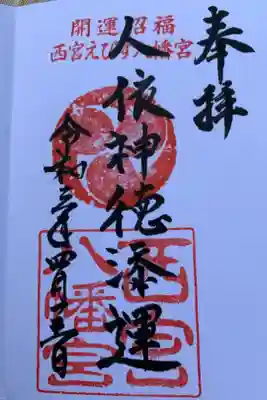 開運招福
西宮えびす八幡宮
奉拝
人依神徳添運
令和三年四月三日
西宮
八幡宮